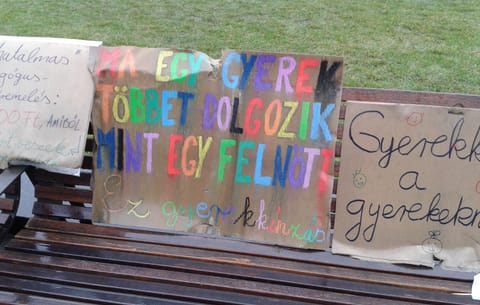 hatalmas
emelés:
00 Ft, amiből
MA EGY GYEREK
TÖBBET DOLGOZIK
MINT EGY FELNŐTT
Ez gyerekkínzás
Gyerekk
a
gyerekekn